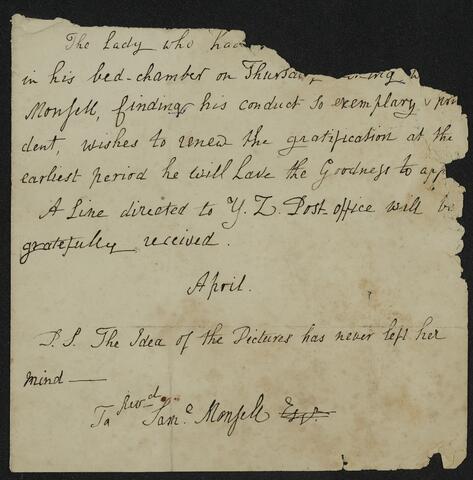 The Lady who had
in his bed-chamber on Thursday
Monsell, finding his conduct so exemplary & pru
dent, wishes to renew the gratification at the
earliest period he will have the Goodness to app
A Line directed to Y. Z. Post-office will be
gratefully received.
April.
P.S. The Idea of the Pictures has never left her
mind —
To Revd Saml Monsell Esqr.